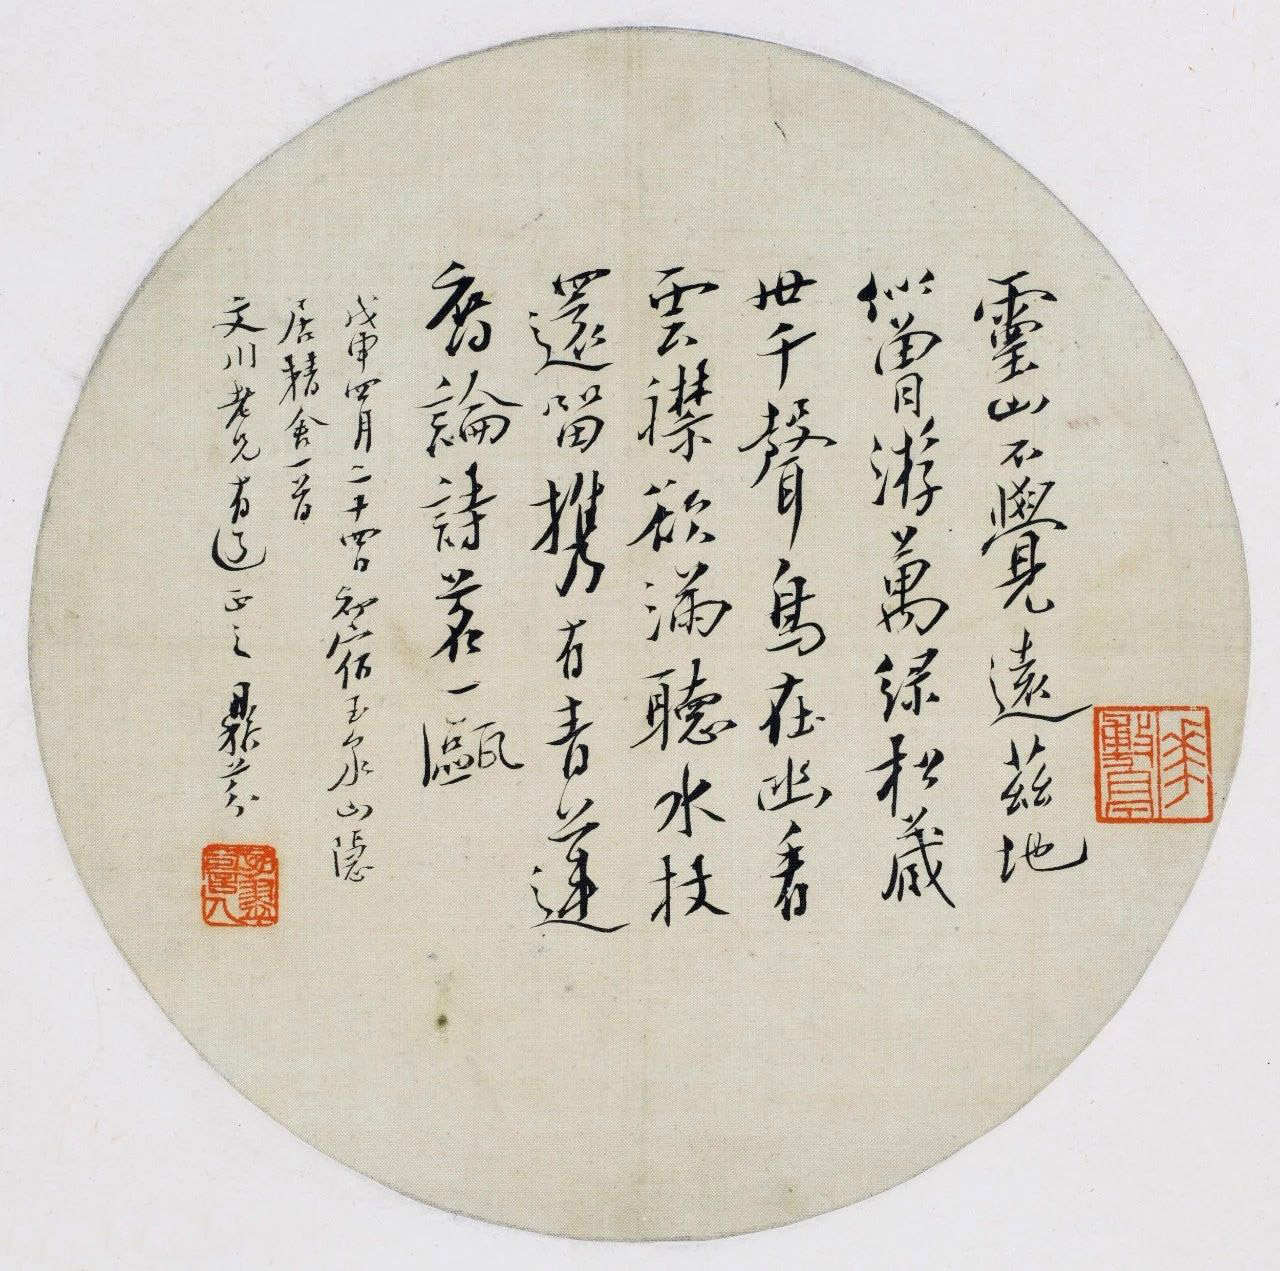 靈山不覺遠茲地
似曾游萬綠松藏
世千聲鳥在幽看
雲襟欲滿聽水杖
還留攜有青蓮
舊論詩茗一甌
戊申四月二十四日初宿玉泉山隱
居精舍一首
文川老兄有道正之 鼎芬